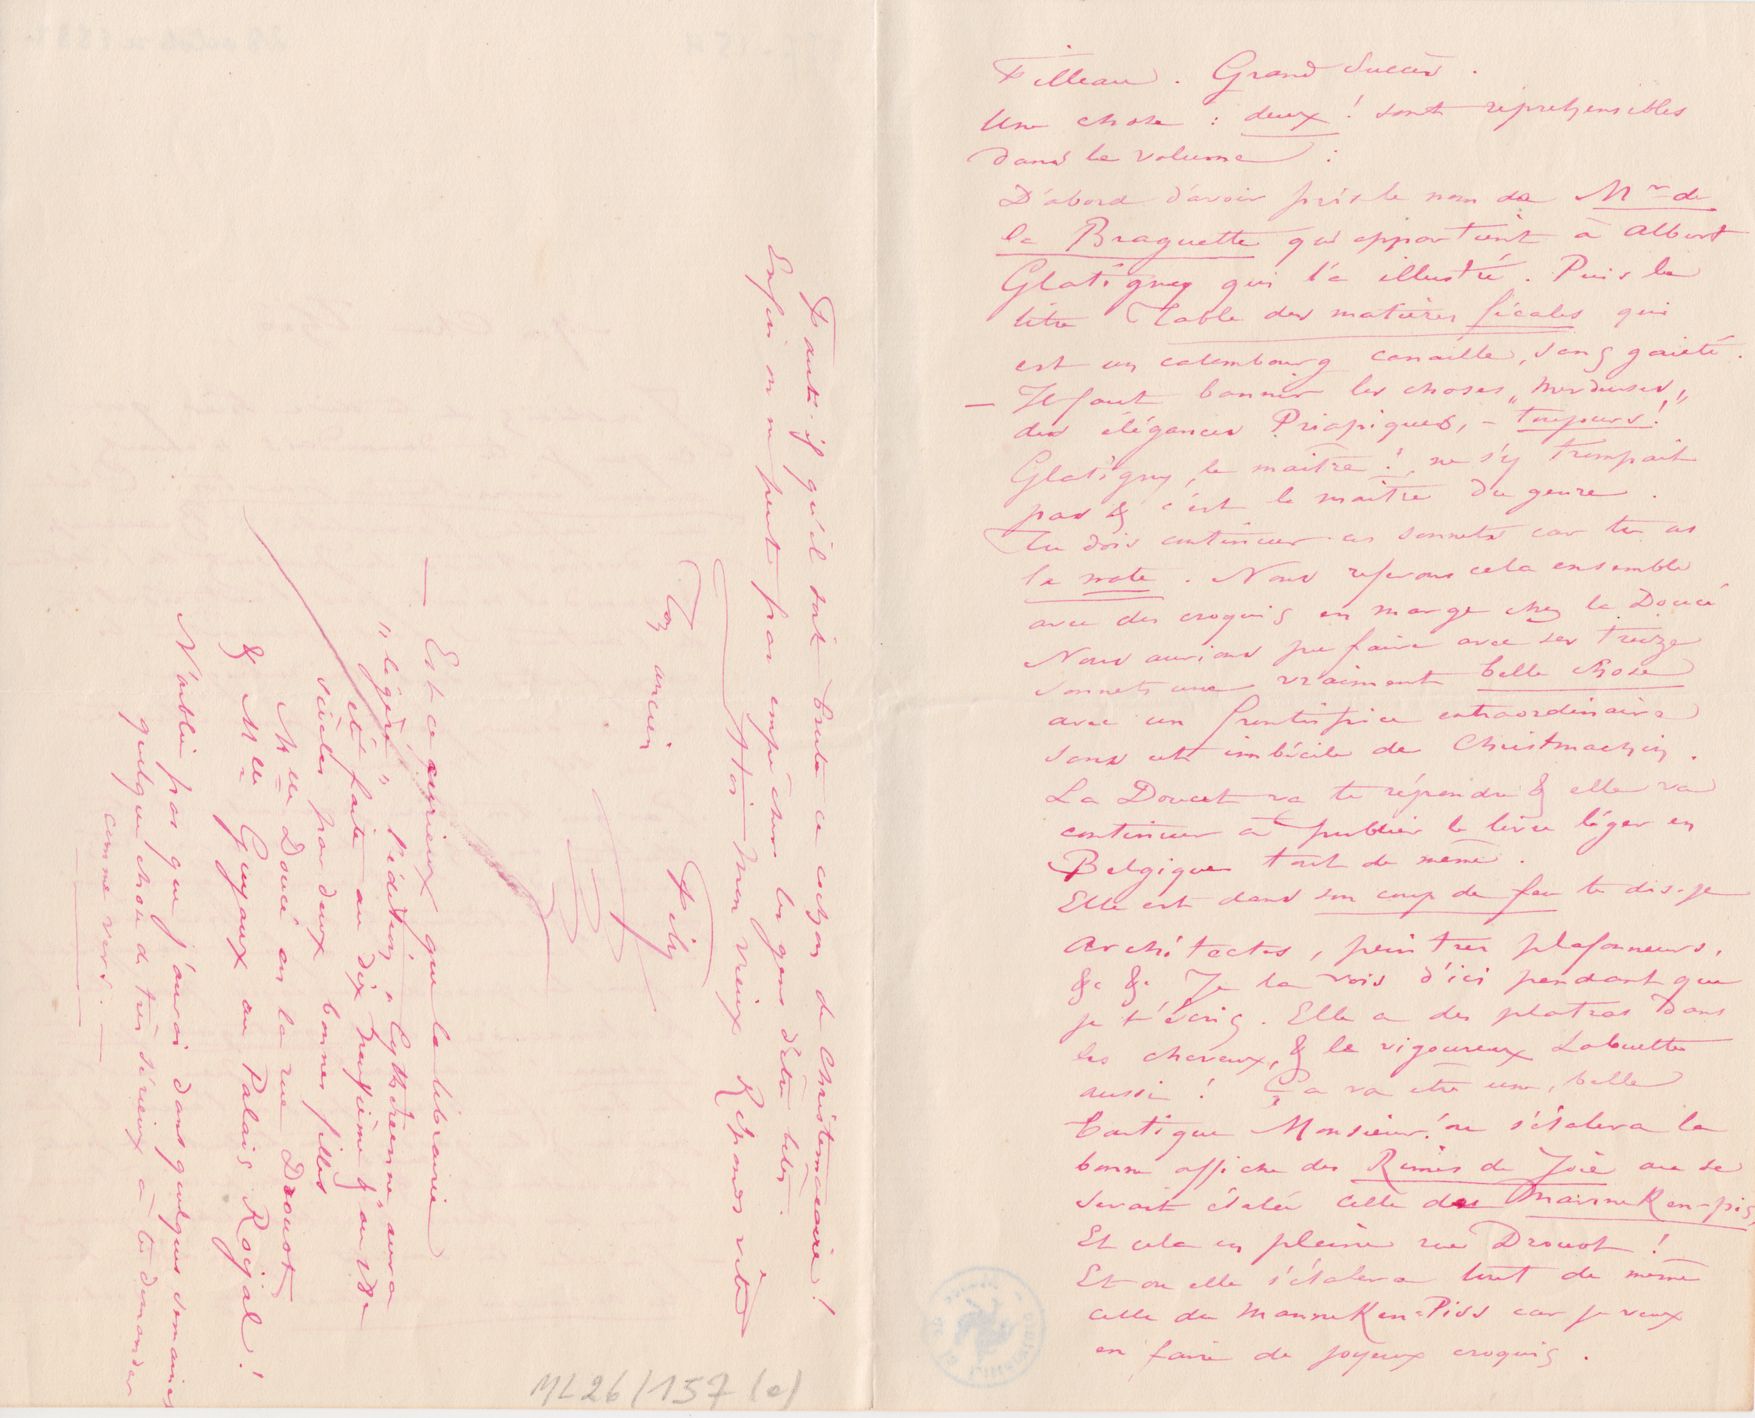 Filleau. Grand Succès.
Une chose : deux ! sont répréhensibles
dans le volume :
D'abord d'avoir pris le nom de Mr de
la Braguette qui appartient à Albert
Glatigny qui l'a illustré. Puis le
titre Table des matières fécales qui
est un calembourg canaille, sans gaieté.
– Il faut bannir les choses „merdeuses„
des élégances Priapiques, – toujours !
Glatigny, le maître !, ne s'y trompait
pas & c'est le maître du genre.
Tu dois continuer ces sonnets car tu as
la note. Nous referons cela ensemble
avec des croquis en marge chez la Doucé
Nous aurions pu faire avec ses treize
sonnets une vraiment belle chose
avec un frontispice extraordinaire
sans cet imbécile de Christmachin.
La Doucet va te répondre & elle va
continuer à publier le livre léger en
Belgique tout de même.
Elle est dans son coup de feu te dis-je
Architectes, peintres plafonneurs,
&c &c Je la vois d'ici pendant que
je t'écris. Elle a des platras dans
les cheveux, & le vigoureux Labuette
aussi ! Ça va être une belle
boutique Monsieur ! où s'étalera la
bonne affiche des Rimes de Joie où se
serait étalée celle des Manneken-pis,
Et cela en pleine rue Drouot !
Et où elle s'étalera tout de même
celle du Manneken-Piss car je veux
en faire de joyeux croquis.
Faut-il qu'il soit brute ce cochon de Christmacaire !
Enfin on ne peut pas empêcher les gens d'être bêtes.
à toi mon vieux Réponds vite
Ton ancien
Fély
– Est-ce curieux que la librairie
„légère„ l'édition „Cythéréenne„ aura
été faite au dix neuvième & au 18e
siècles par deux bonnes filles
Mlle Doucé en la rue Drouot
& Mlle Guyaux au Palais Royal !
N'oublie pas que j'aurai dans quelques semaines
quelque chose de très sérieux à te demander
comme vers.
ML 26/157 (e)